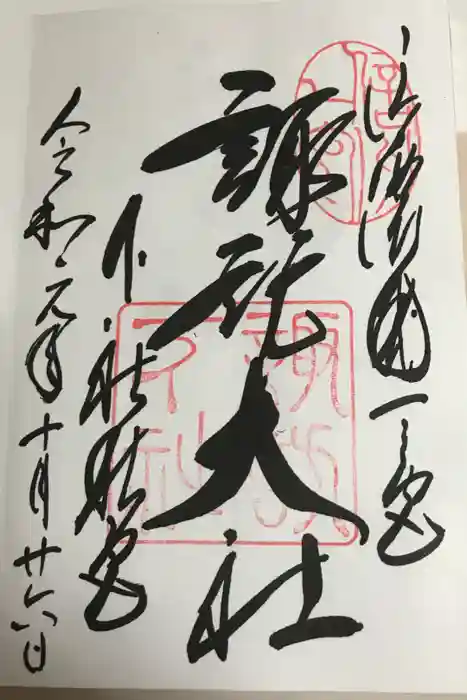 信濃國一之宮
諏訪大社
下社秋宮
令和元年十月廿六日
諏訪
下社